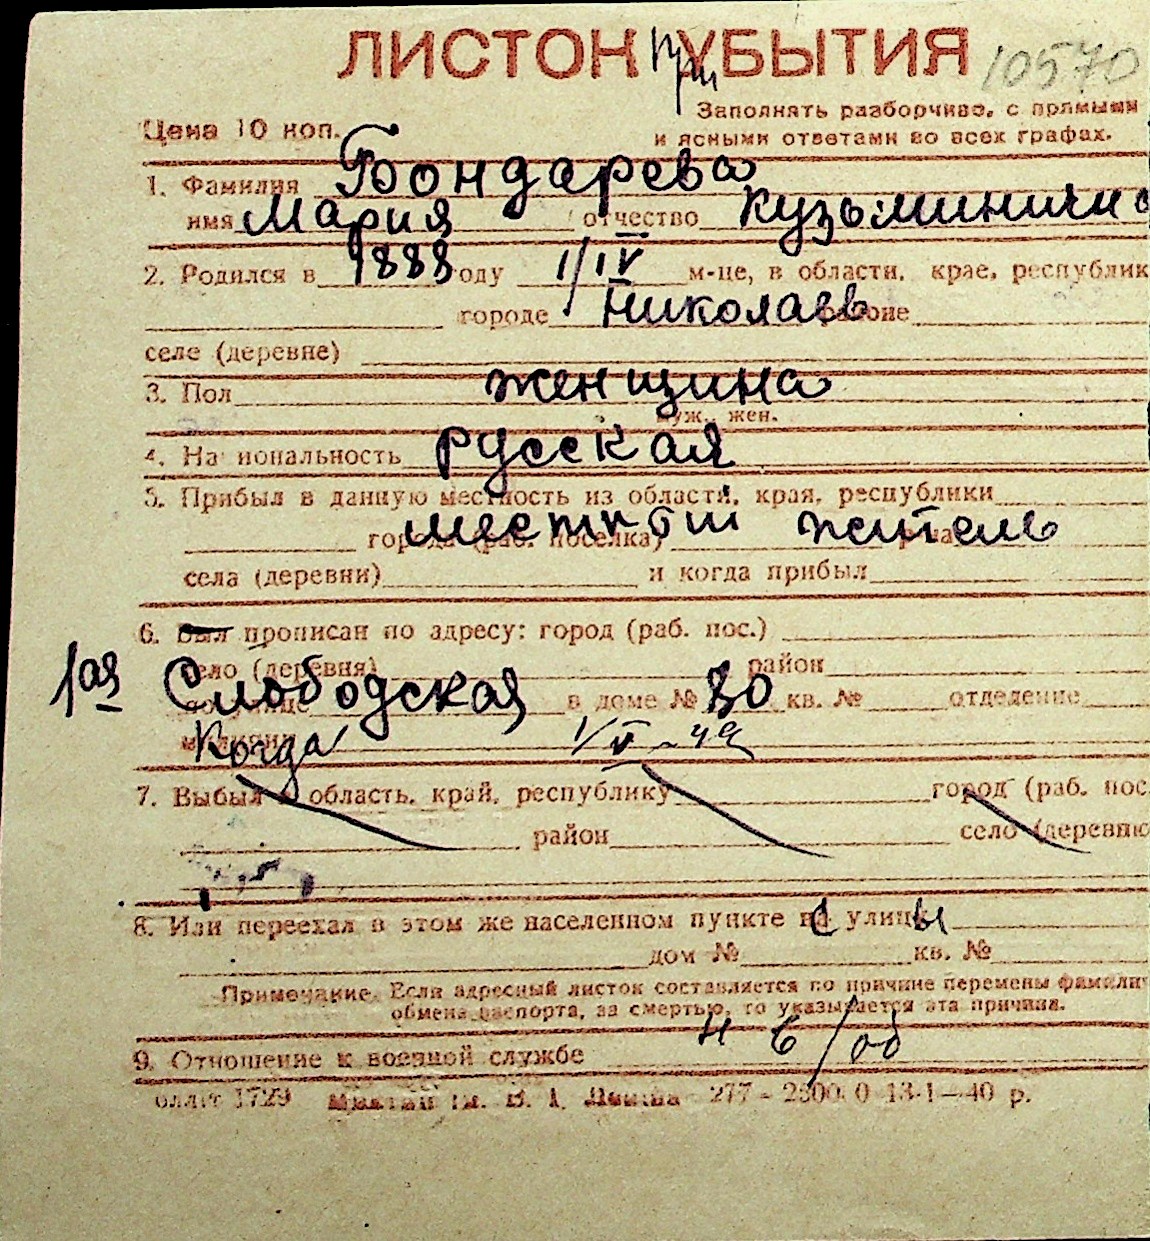 ЛИСТОК при УБЫТИЯ 10570
Заполнять разборчиво, с прямыми
Цена 10 коп. и ясными ответами во всех графах.
1. Фамилия Бондарева
имя Мария отчество Кузьминична
2. Родился в 1888 году 1/IV м-це, в области, крае, республик
городе Николаев районе
селе (деревне)
3. Пол женщина
муж., жен.
4. Национальность русская
5. Прибыл в данную местность из области, края, республики
местный житель
города (раб. поселка) района
села (деревни) и когда прибыл
6. Был прописан по адресу: город (раб. пос.)
село (деревня) район
1ая Слободская в доме № 80 кв. № отделение
милиции Когда 1/V-42
7. Выбыл в область, край, республику город (раб. пос.
район село (деревню
8. Или переехал в этом же населенном пункте с улицы
дом № кв. №
Примечание. Если адресный листок составляется по причине перемены фамили
обмена паспорта, за смертью, то указывается эта причина.
9. Отношение к военной службе н в/об
1729 277 - 2500.0 13-1-40 р.